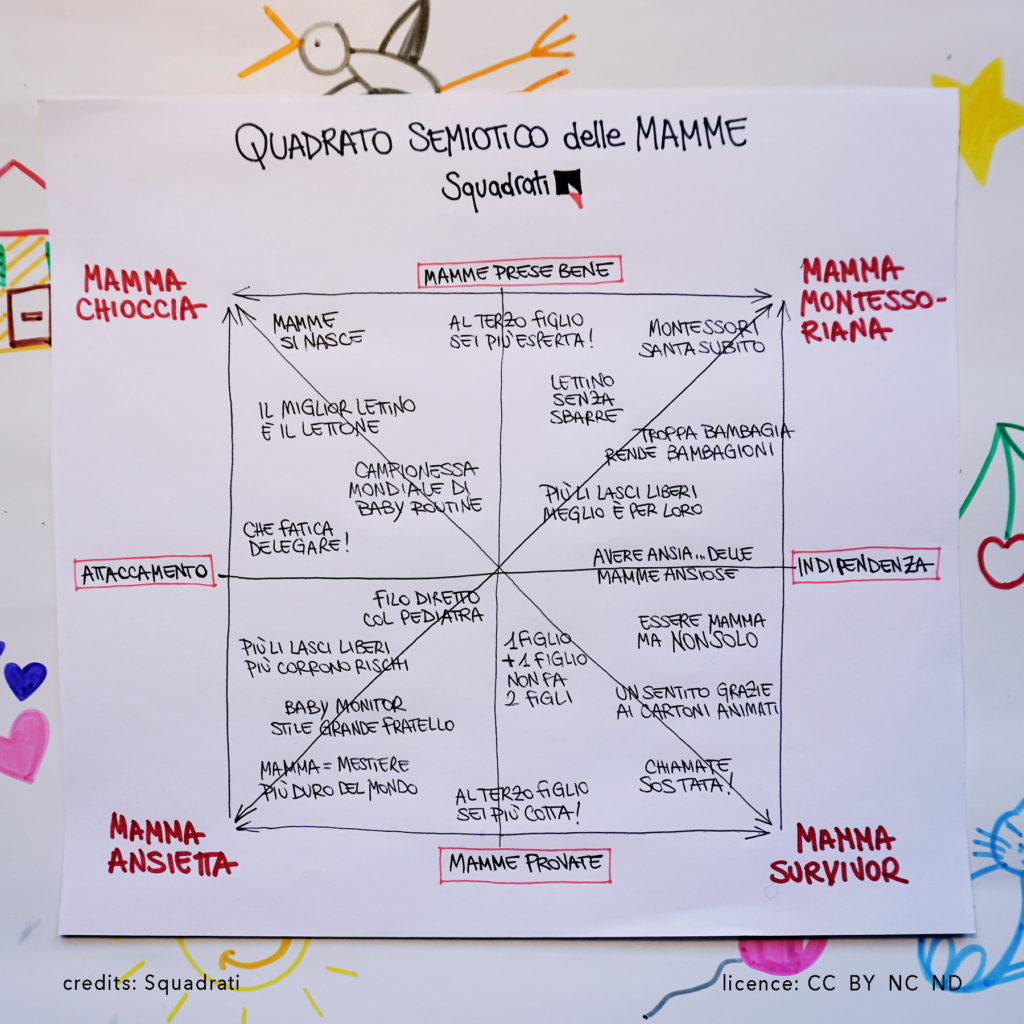 QUADRATO SEMIOTICO delle MAMME
Squadrati
MAMMA
CHIOCCIA
MAMME PRESE BENE
MAMMA
MONTESSO-
RIANA
MAMME
SI NASCE
AL TERZO FIGLIO
SEI PIÙ ESPERTA!
MONTESSORI
SANTA SUBITO
LETTINO
SENZA
SBARRE
IL MIGLIOR LETTINO
È IL LETTONE
TROPPA BAMBAGIA
RENDE BAMBAGIONI
CAMPIONESSA
MONDIALE DI
BABY ROUTINE
PIÙ LI LASCI LIBERI
MEGLIO È PER LORO
CHE FATICA
DELEGARE!
AVERE ANSIA... DELLE
MAMME ANSIOSE
ATTACCAMENTO
INDIPENDENZA
FILO DIRETTO
COL PEDIATRA
1 FIGLIO
+ 1 FIGLIO
NON FA
2 FIGLI
ESSERE MAMMA
MA NON SOLO
PIÙ LI LASCI LIBERI
PIÙ CORRONO RISCHI
UN SENTITO GRAZIE
AI CARTONI ANIMATI
BABY MONITOR
STILE GRANDE FRATELLO
MAMMA = MESTIERE
PIÙ DURO DEL MONDO
CHIAMATE
SOS TATA!
AL TERZO FIGLIO
SEI PIÙ COTTA!
MAMMA
ANSIETTA
MAMME PROVATE
MAMMA
SURVIVOR
credits: Squadrati
licence: CC BY NC ND